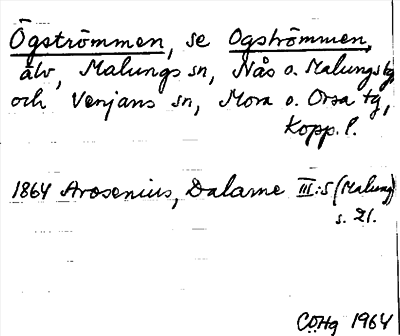 Ögströmmen, se Ogströmmen,
älv, Malungs sn, Nås o. Malungs tg
och Venjans sn, Mora o. Orsa tg,
Kopp. l.
1864 Arosenius, Dalarne III:5 (Malung)
s. 21.
CÖHg 1964